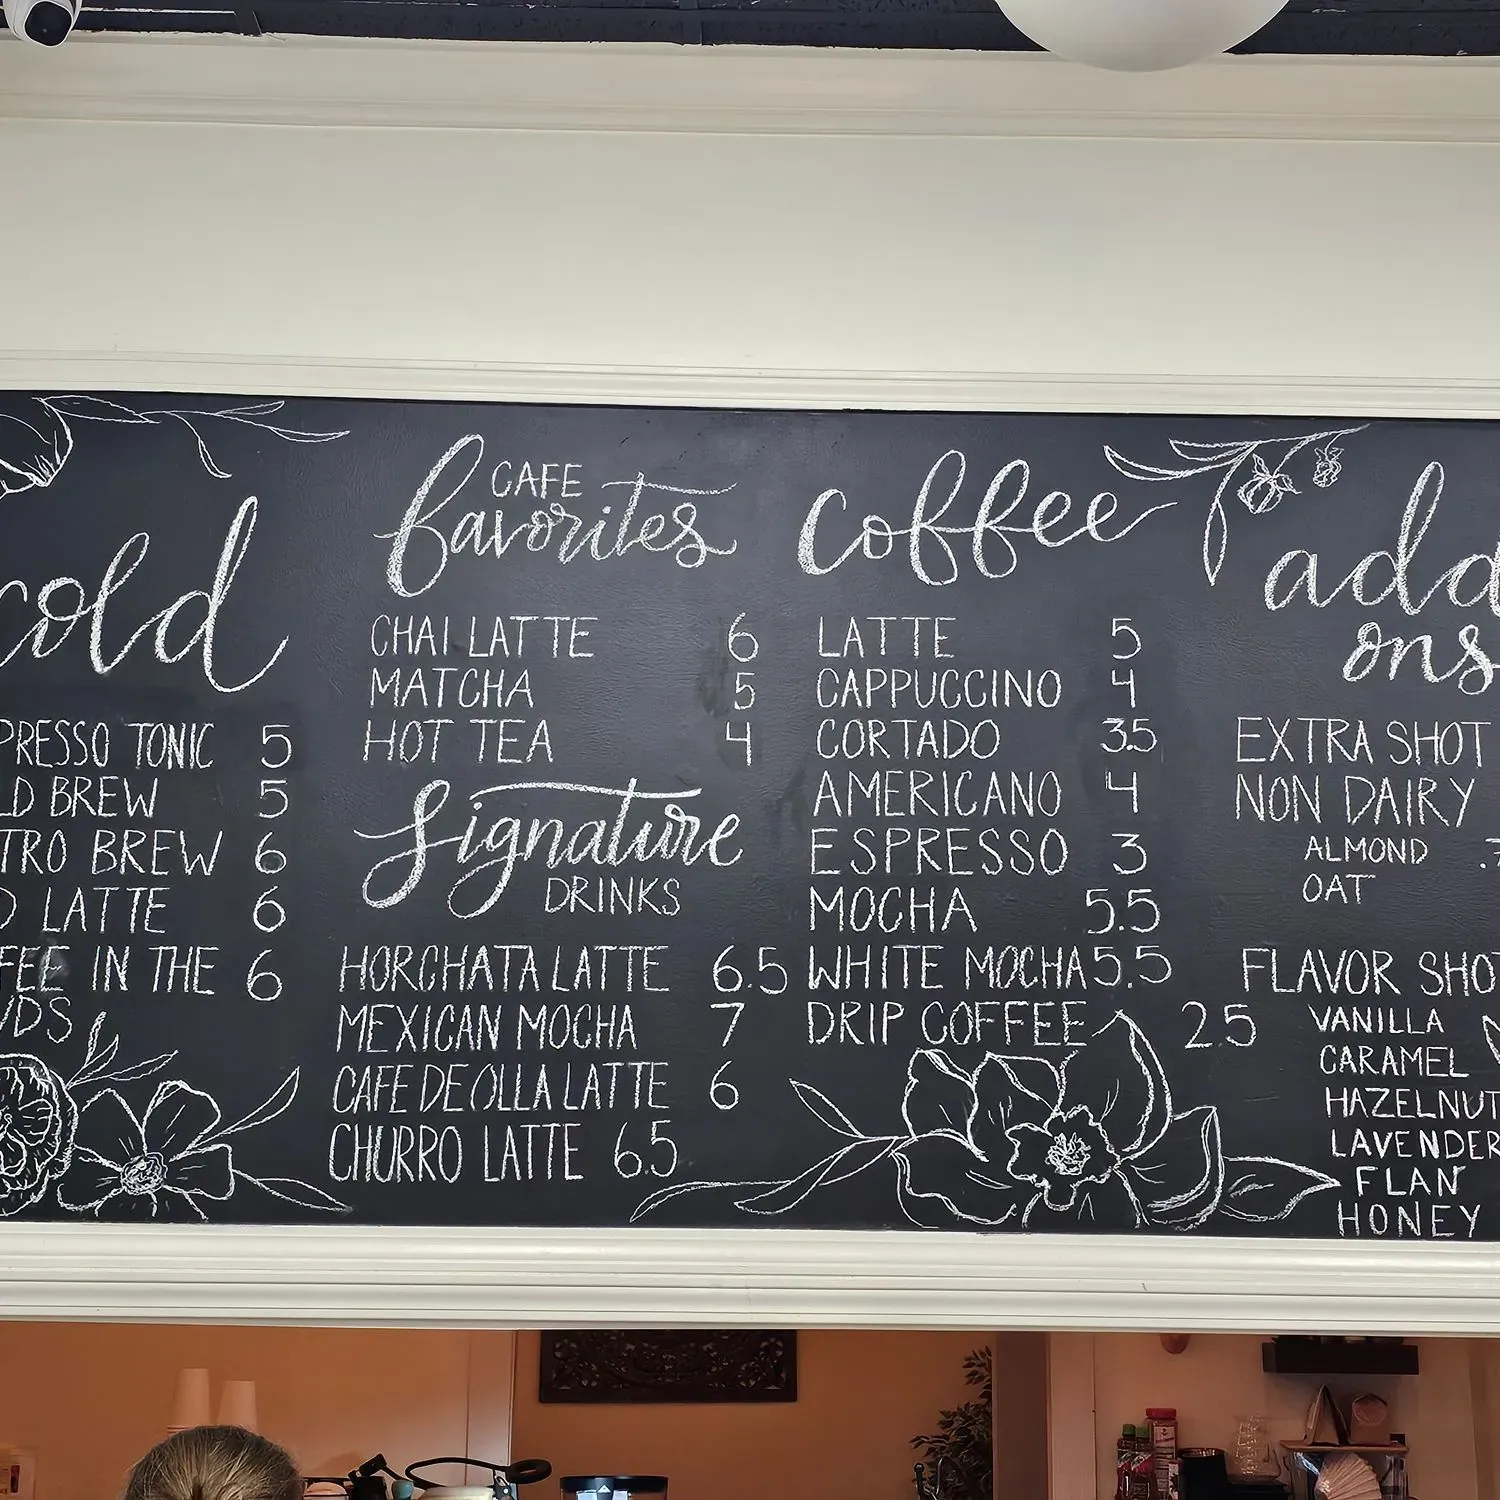 cold
PRESSO TONIC 5
D BREW 5
TRO BREW 6
D LATTE 6
FEE IN THE 6
UDS
CAFE
favorites
CHAI LATTE 6
MATCHA 5
HOT TEA 4
Signature
DRINKS
HORCHATA LATTE 6.5
MEXICAN MOCHA 7
CAFE DE OLLA LATTE 6
CHURRO LATTE 6.5
coffee
LATTE 5
CAPPUCCINO 4
CORTADO 3.5
AMERICANO 4
ESPRESSO 3
MOCHA 5.5
WHITE MOCHA 5.5
DRIP COFFEE 2.5
add
ons
EXTRA SHOT
NON DAIRY
ALMOND
OAT
FLAVOR SHO
VANILLA
CARAMEL
HAZELNUT
LAVENDER
FLAN
HONEY